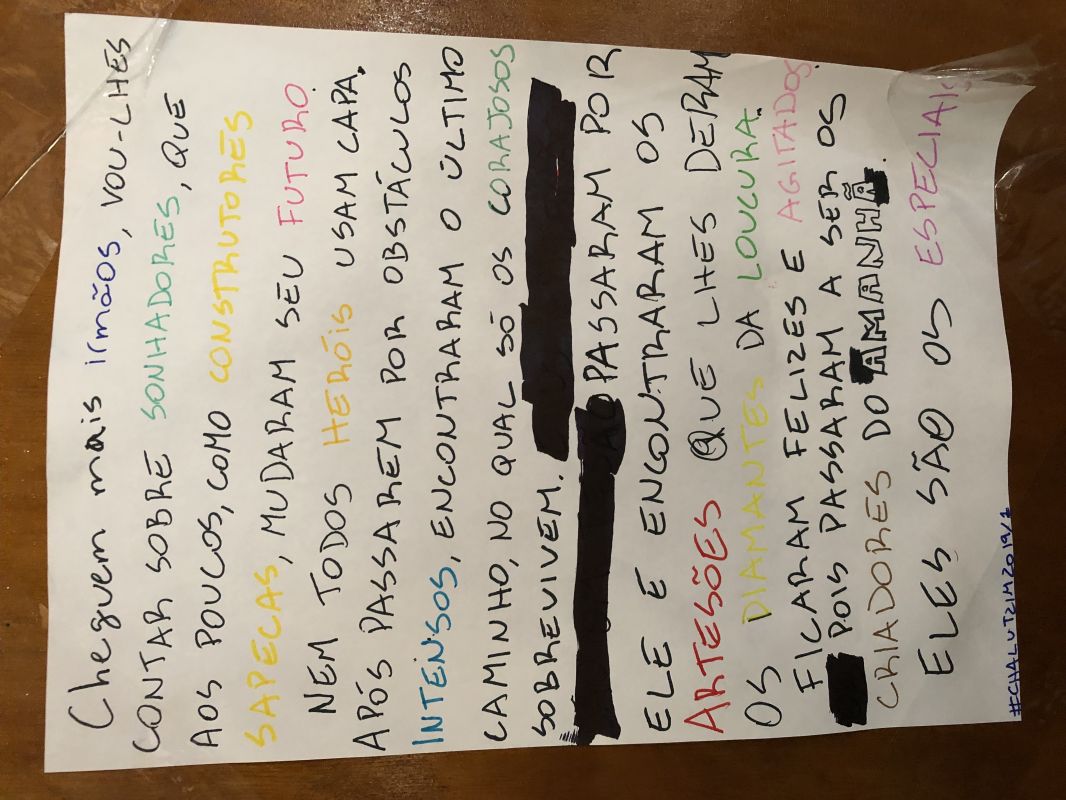 Cheguem mais irmãos, VOU-LHES
CONTAR SOBRE SONHADORES, QUE
AOS POUCOS, COMO CONSTRUTORES
SAPECAS, MUDARAM SEU FUTURO.
NEM TODOS HERÓIS USAM CAPA.
APÓS PASSAREM POR OBSTÁCULOS
INTENSOS, ENCONTRARAM O ÚLTIMO
CAMINHO, NO QUAL SÓ OS CORAJOSOS
SOBREVIVEM.
PASSARAM POR
ELE E ENCONTRARAM OS
ARTESÕES QUE LHES DERAM
OS DIAMANTES DA LOUCURA.
FICARAM FELIZES E AGITADOS,
POIS PASSARAM A SER OS
CRIADORES DO AMANHÃ.
ELES SÃO OS ESPECIAIS
#CHALUTZIM2019/1